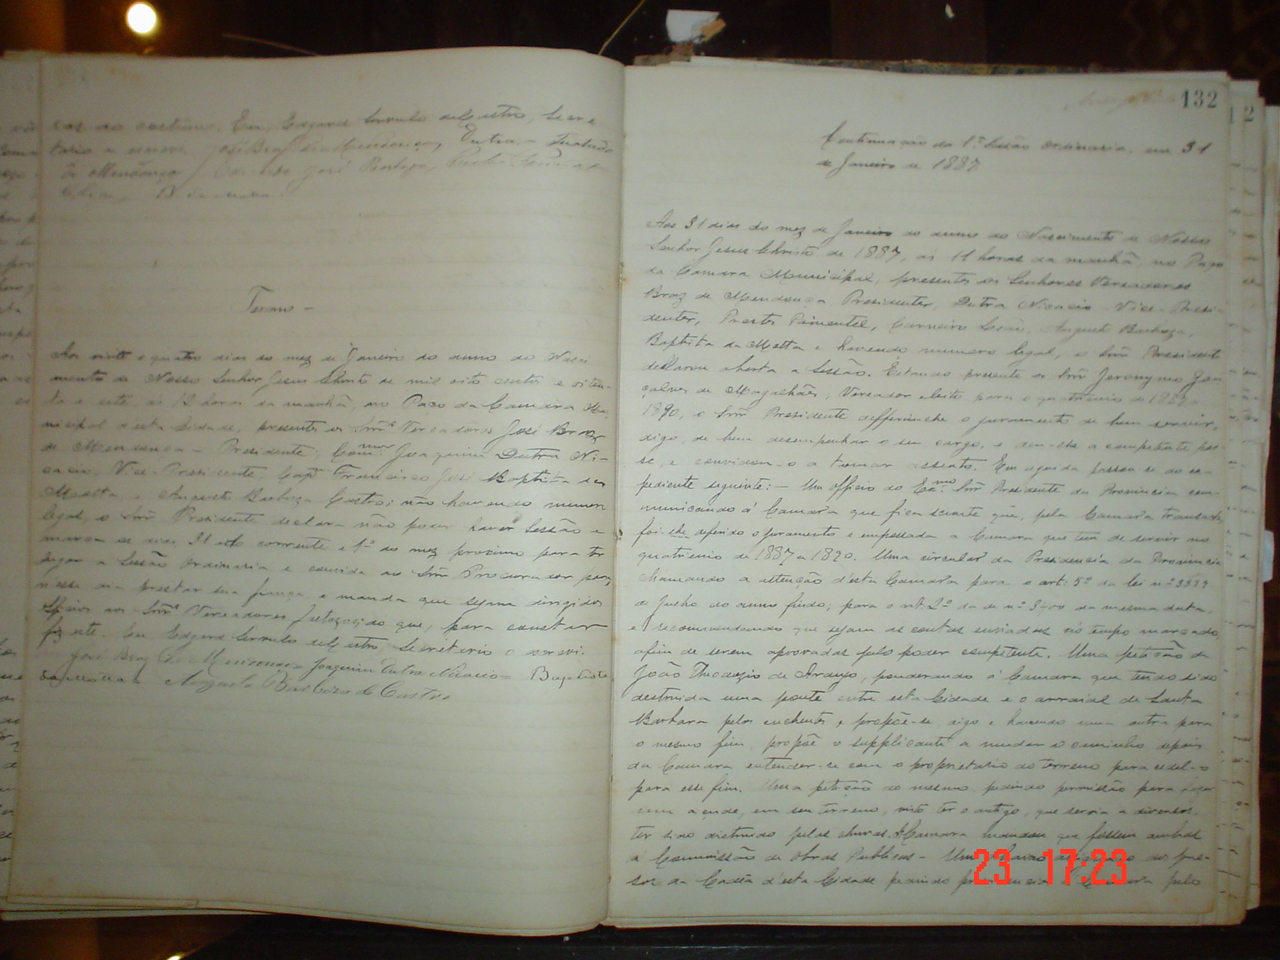 cas do costume. Eu, Edgard Servulo de Castro, Secre
tario a escrevi. José Braz de Mendonça, Dutra
José Barboza,
Termo -
Aos vinte e quatro dias do mez de Janeiro do anno do Nasci
mento de Nosso Senhor Jesus Christo de mil oito centos e oiten-
ta e sete, ás 12 horas da manhã, no Paço da Camara Mu
nicipal d'esta Cidade, presentes os Snrs. Vereadores José Braz
de Mendonça - Presidente; Joaquim Dutra Ni-
cacio, Vice-Presidente, Capm. Francisco José Baptista da
Motta e Augusto Barboza Castro; não havendo numero
legal, o Snr. Presidente declara não poder haver Sessão e
marca os dias 31 do corrente e 1º do mez proximo para ter
lugar a Sessão Ordinaria e convida ao Snr. Procurador para
n'esse dia prestar sua fiança, e manda que sejam dirigidos
officios aos Snrs. Vereadores que, para constar
fiz este. Eu Edgard Servulo de Castro, Secretario o escrevi.
José Braz de Mendonça Joaquim Dutra Nicacio - Baptista
da Motta - Augusto Barboza de Castro.
132
Continuação da 1ª Sessão ordinaria, em 31
de Janeiro de 1887
Aos 31 dias do mez de Janeiro do anno do Nascimento de Nosso
Senhor Jesus Christo de 1887, ás 11 horas da manhã no Paço
da Camara Municipal, presentes os Senhores Vereadores
Braz de Mendonça Presidente, Dutra Nicacio - Vice-Presi-
dente, Pimentel, Carneiro Leão, Augusto Barboza,
Baptista da Motta e havendo numero legal, o Snr. Presidente
declarou aberta a Sessão. Estando presente o Snr. Jeronymo Gon
çalves de Magalhães, Vereador eleito para o quatriennio de 1887 a
1890, o Snr. Presidente defferio-lhe o juramento de bem servir,
digo, de bem desempenhar o seu cargo, e deu-lhe a competente pos
se, e convidou-o a tomar assento. Em seguida passou-se ao ex-
pediente seguinte: - Um officio do Exmo. Snr. Presidente da Provincia com-
municando á Camara que fica sciente que, pela Camara transacta
foi deferido o juramento e empossada a Camara que tem de servir no
quatriennio de 1887 a 1890. Uma circular da Presidencia da Provincia
chamando a attenção d'esta Camara para o art. 5º da lei nº
de Julho do anno findo; para o art. 2º da de nº 3400 da mesma data,
e recommendando que sejam as contas enviadas no tempo marcado
afim de serem approvadas pelo poder competente. Uma petição de
João Theodozio de Araujo, ponderando á Camara que tendo sido
destruida uma ponte entre esta Cidade e o arraial de Santa
Barbara pelas enchentes, e propõe-se, digo e havendo uma outra para
o mesmo fim, propõe o supplicante a mudar o caminho, depois
da Camara entender-se com o proprietario do terreno para cedel-o
para esse fim. Uma petição do mesmo pedindo permissão para fazer
um açude, em seu terreno, visto ter o antigo, que servia a diversos,
ter sido destruido pelas chuvas. A Camara mandou que fossem ambas
á Commissão de Obras Publicas -
da Cadêa d'esta Cidade pedindo Camara pelo
23 17:23